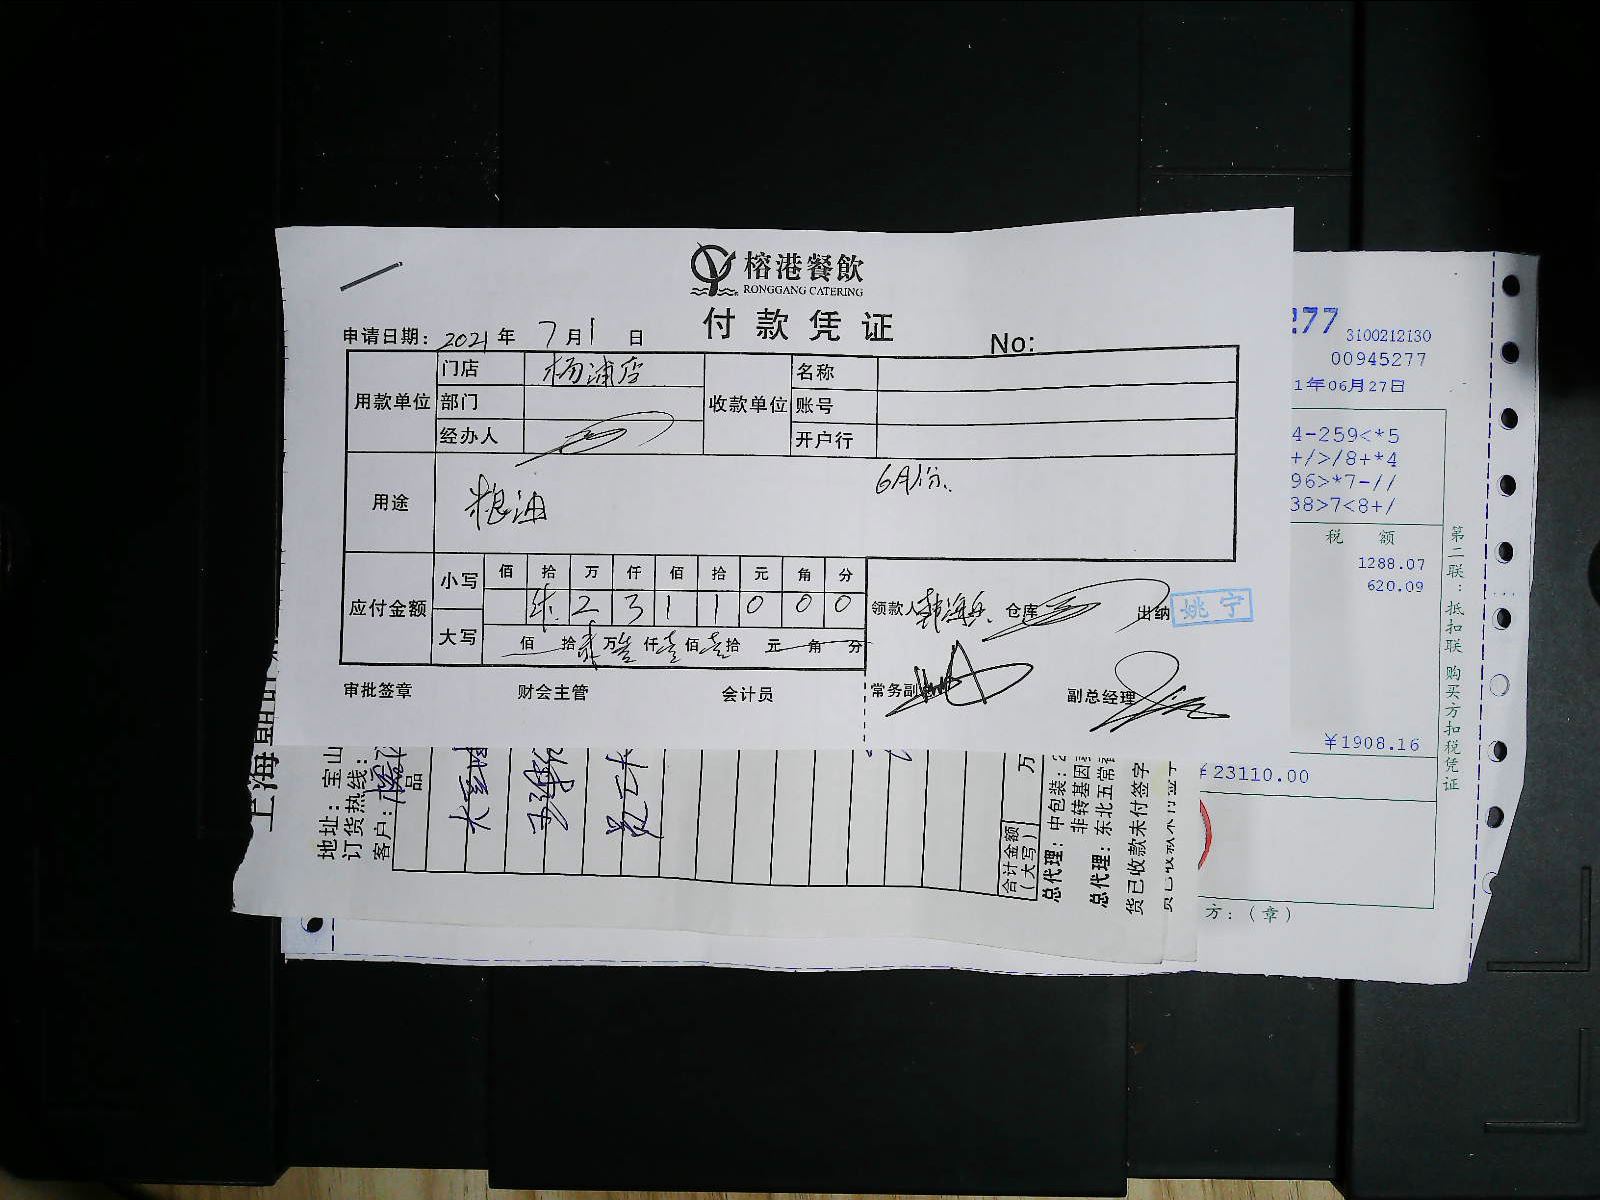 榕港餐飲
RONGGANG CATERING
付款凭证
申请日期：2021年7月1日
No:
用款单位 门店 杨浦店 收款单位 名称
部门 账号
经办人 开户行
用途 粮油 6月份
应付金额 小写 佰 拾 万 仟 佰 拾 元 角 分
2 3 1 1 0 0 0
大写 佰 拾 贰 万 叁 仟 壹 佰 壹 拾 元 角 分
领款人 仓库 出纳 姚宁
审批签章 财会主管 会计员 常务副 副总经理
277
3100212130
00945277
1年06月27日
4-259<*5
+/>/8+*4
96>*7-//
38>7<8+/
税 额
1288.07
620.09
¥1908.16
¥23110.00
方：（章）
第二联：抵扣联 购买方扣税凭证
上海
地址：宝山
订货热线：
客户：
品
万
合计金额
（大写）
总代理：中包装：
非转基因
总代理：东北五常
货已收款未付签字